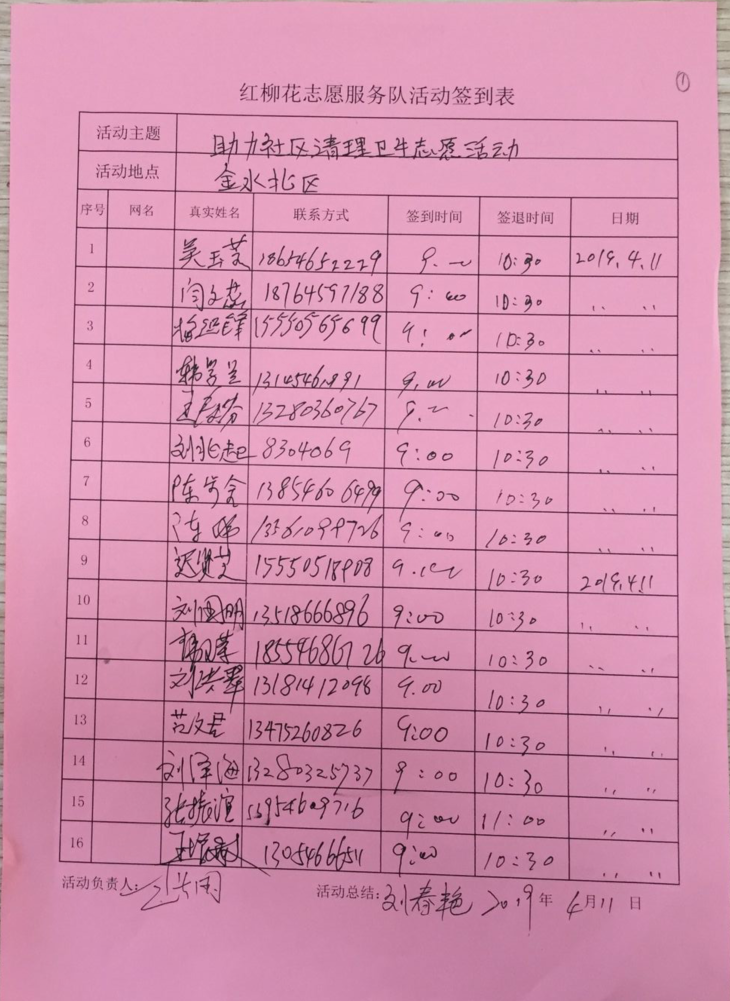 ①
红柳花志愿服务队活动签到表
活动主题 助力社区清理卫生志愿活动
活动地点 金水北区
序号 网名 真实姓名 联系方式 签到时间 签退时间 日期
1 吴玉芝 18654652229 9. 10:30 2019.4.11
2 闫文蕊 18764597188 9:00 10:30 〃 〃
3 15550565699 9:00 10:30 〃 〃
4 9.00 10:30 〃 〃
5 13280360767 9. 10:30 〃 〃
6 8304069 9:00 10:30 〃 〃
7 13854606499 9:00 10:30 〃 〃
8 9:00 10:30 〃 〃
9 15550518908 9.00 10:30 2019.4.11
10 刘国明 13518666896 9:00 10:30 〃 〃
11 18554686726 9.00 10:30 〃 〃
12 刘洪翠 13181412098 9.00 10:30 〃 〃
13 范文君 13475260826 9:00 10:30 〃 〃
14 刘泽海 13280325737 9:00 10:30 〃 〃
15 张振谊 9:00 11:00 〃 〃
16 13054666511 9:00 10:30 〃 〃
活动负责人: 活动总结:刘春艳 2019年4月11日